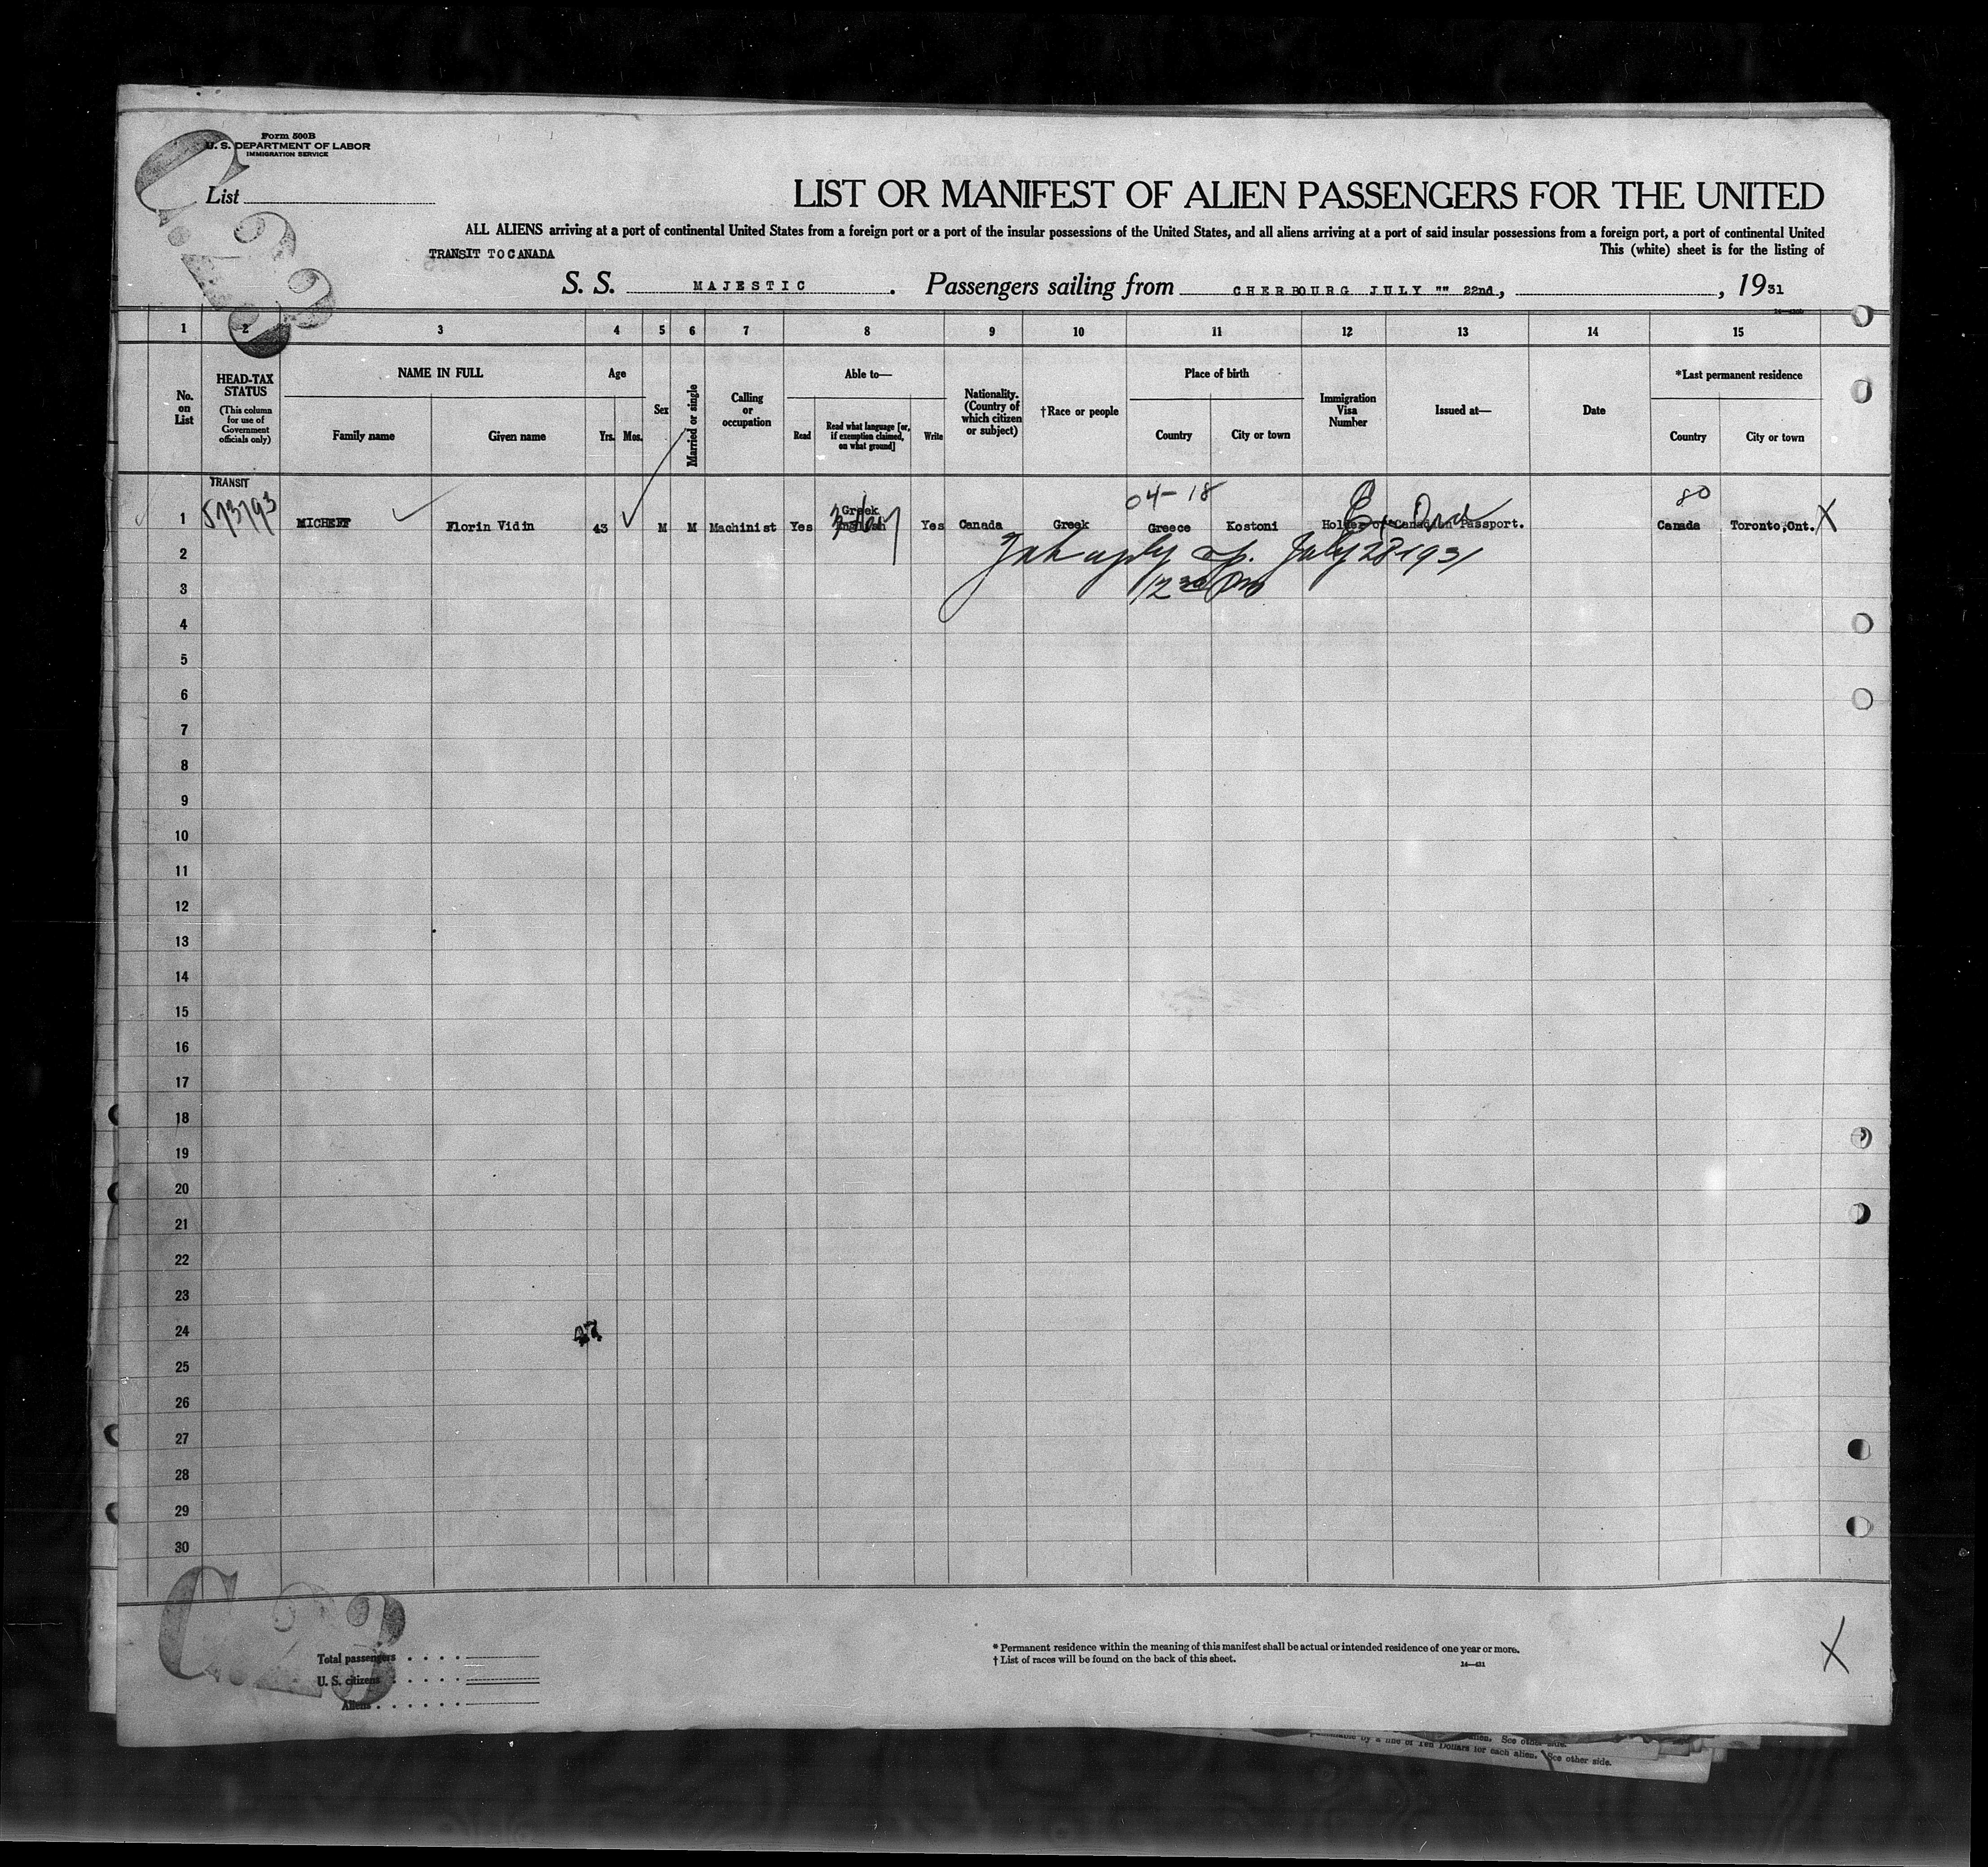 Form 500B
U. S. DEPARTMENT OF LABOR
IMMIGRATION SERVICE
C.23
List
LIST OR MANIFEST OF ALIEN PASSENGERS FOR THE UNITED
ALL ALIENS arriving at a port of continental United States from a foreign port or a port of the insular possessions of the United States, and all aliens arriving at a port of said insular possessions from a foreign port, a port of continental United
TRANSIT TO CANADA
This (white) sheet is for the listing of
S. S. MAJESTIC . Passengers sailing from CHERBOURG JULY "" 22nd, , 1931
1 2 3 4 5 6 7 8 9 10 11 12 13 14 15
No. on List
HEAD-TAX STATUS
(This column for use of Government officials only)
NAME IN FULL
Family name
Given name
Age
Yrs.
Mos.
Sex
Married or single
Calling or occupation
Able to—
Read
Read what language [or, if exemption claimed, on what ground]
Write
Nationality. (Country of which citizen or subject)
†Race or people
Place of birth
Country
City or town
Immigration Visa Number
Issued at—
Date
*Last permanent residence
Country
City or town
TRANSIT
573793
04-18
80
1 MICHEFF Florin Vidin 43 M M Machinist Yes Greek English Yes Canada Greek Greece Kostoni Holder of Canadian Passport. Canada Toronto,Ont. X
2
July 28 1931
3
12 30 Pm
4
5
6
7
8
9
10
11
12
13
14
15
16
17
18
19
20
21
22
23
24
27
25
26
27
28
29
30
C.23
Total passengers . . . .
U. S. citizens . . . . .
Aliens . . . . . .
* Permanent residence within the meaning of this manifest shall be actual or intended residence of one year or more.
† List of races will be found on the back of this sheet.
14—421
X
alien. See other side.
punishable by a fine of Ten Dollars for each alien. See other side.